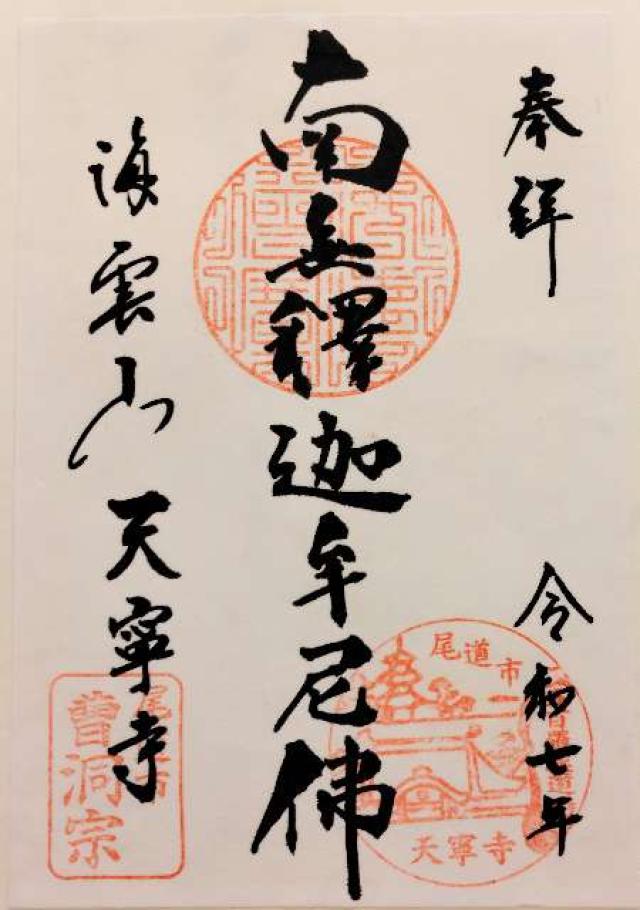 奉拝
令和七年
南無釋迦牟尼佛
海雲山天寧寺
尾道市
天寧寺
曹洞宗